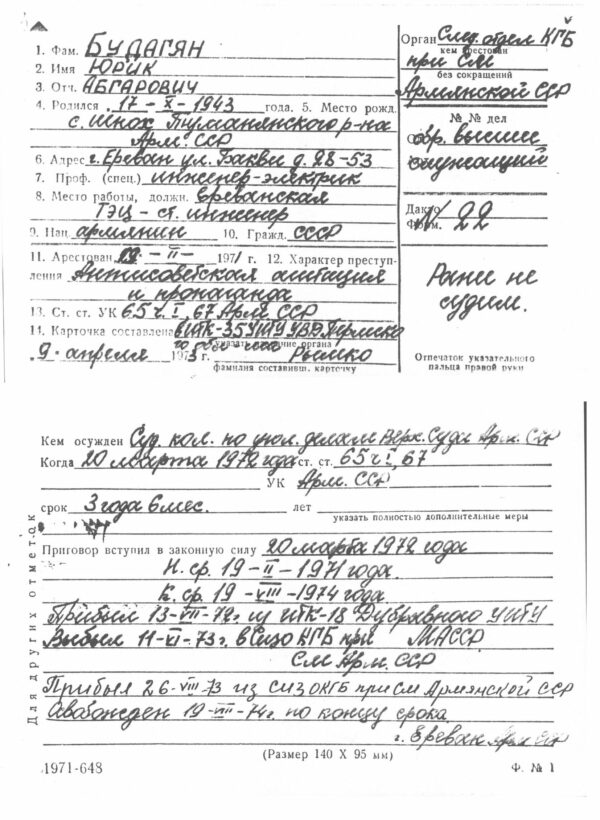 1. Фам. БУДАГЯН
2. Имя ЮРИК
3. Отч. АБГАРОВИЧ
4. Родился 17 – X – 1943 года. 5. Место рожд.
с. Шнох Туманянского р-на
Арм. ССР
6. Адрес г. Ереван ул. Бакви д. 28-53
7. Проф. (спец.) инженер-электрик
8. Место работы, должн. Ереванская
ТЭЦ – ст. инженер
9. Нац. армянин 10. Гражд. СССР
11. Арестован 19 – II – 1971 г. 12. Характер преступ-
ления Антисоветская агитация
и пропаганда
13. Ст. ст. УК 65 ч. I, 67 Арм. ССР
14. Карточка составлена ВИТК-35 УИТУ УВД Пермско
го
указать название органа
9. апреля 1973 г. Рымко
фамилия составивш. карточку
Орган След. отдел КГБ
кем арестован
при СМ
без сокращений
Армянской ССР
№ № дел
обр. высшее
служащий
Дакто
Форм. 22
Ранее не
судим.
Отпечаток указательного
пальца правой руки
Кем осужден Суд. кол. по угол. делам Верх. Суда Арм. ССР
Когда 20 марта 1972 года ст. ст. 65 ч I, 67
УК Арм. ССР
срок 3 года 6 мес. лет
указать полностью дополнительные меры
Приговор вступил в законную силу 20 марта 1972 года
Н. ср. 19 – II – 1971 года.
К. ср. 19 – VIII – 1974 года
Прибыл 13-VII-72 г. из ИТК-18 Дубравного УИТУ
Выбыл 11-VI-73 г. в Сизо КГБ при МАССР
СМ Арм. ССР
Прибыл 26-VIII-73 из СИЗО КГБ при СМ Армянской ССР
Освобожден 19-VIII-74 г. по концу срока
г. Ереван Арм ССР
Для других отметок
(Размер 140 X 95 мм)
1971-648
Ф. № 1